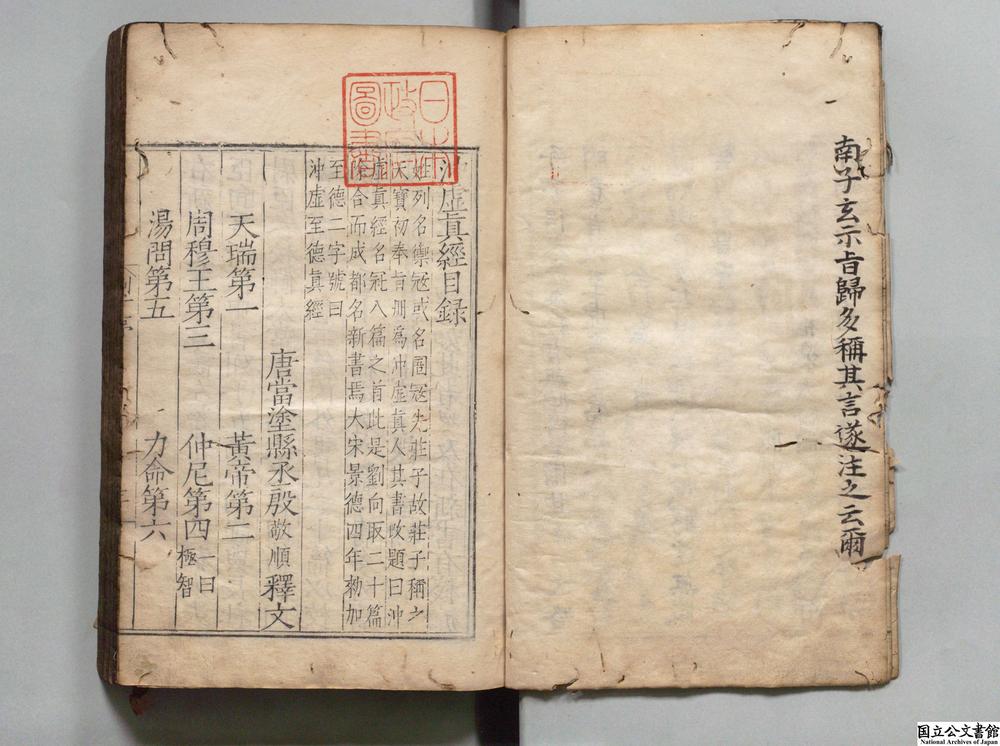 南子玄示旨歸多稱其言遂注之云爾
沖虛眞經目録
姓列名禦寇或名圄寇先莊子故莊子稱之
天寶初奉旨冊爲沖虛眞人其書改題曰沖
虛眞經名冠八篇之首此是劉向取二十篇
除合而成都名新書焉大宋景德四年勑加
至德二字號曰
沖虛至德眞經
唐當塗縣丞殷敬順釋文
天瑞第一 黃帝第二
周穆王第三 仲尼第四一曰極智
湯問第五 力命第六
日本政府圖書
国立公文書館
National Archives of Japan